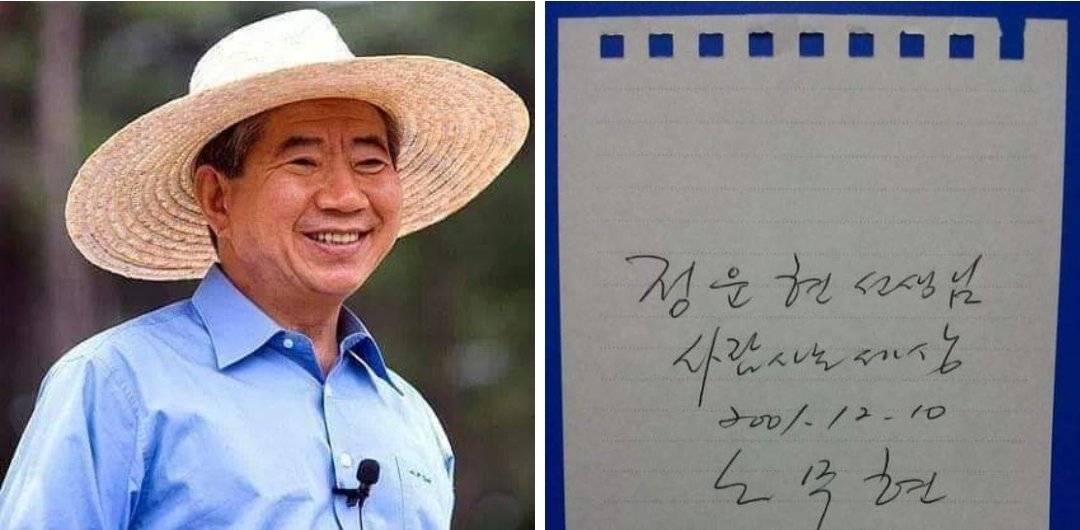 정운현 선생님
사람 사는 세상
2001. 12. 10
노무현